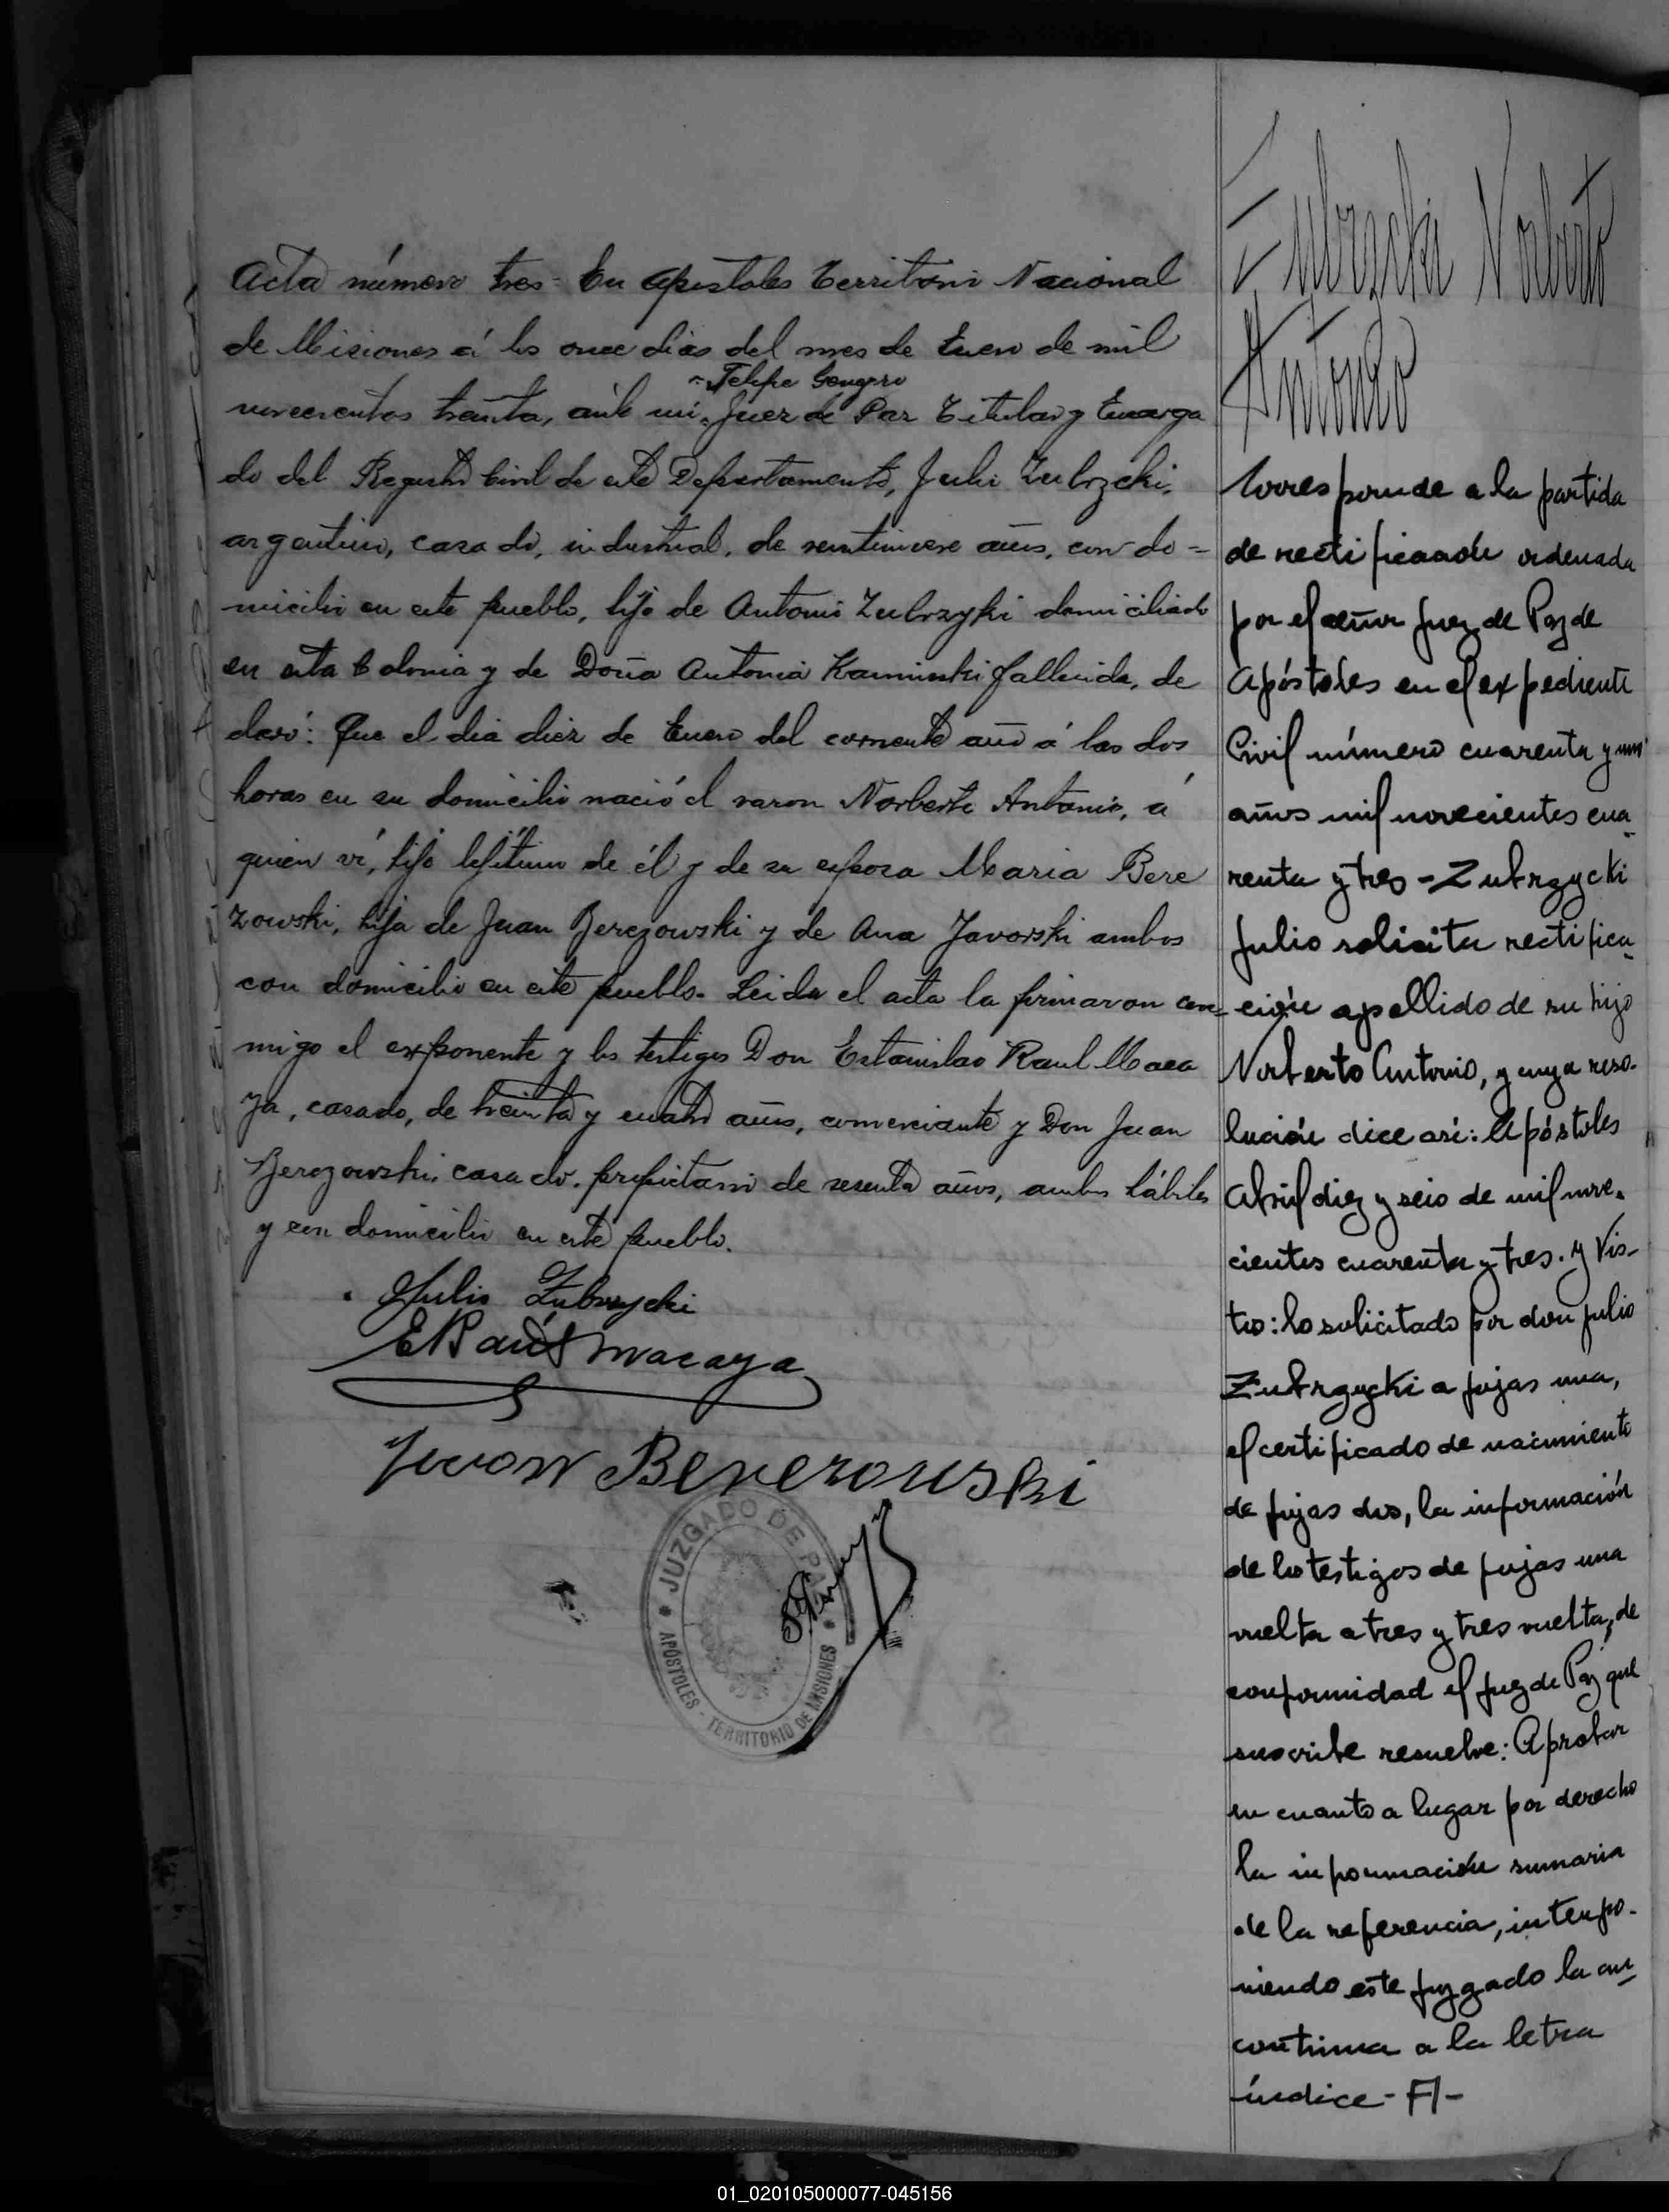 Acta número tres = En Apostoles Territorio Nacional
de Misiones á los once dias del mes de Enero de mil
Felipe
novecientos treinta, ante mi, Juez de Paz Titular y Encarga
do del Registro Civil de este Departamento, Julio Zubrzcki,
argentino, casado, industrial, de veintinueve años, con do=
micilio en este pueblo, hijo de Antonio Zubrzyki domiciliado
en esta Colonia y de Doña Antonia Kaminski fallecida, de
claró: Que el dia diez de Enero del corriente año á las dos
horas en su domicilio nació el varon Norberto Antonio, á
quien ví, hijo lejitimo de él y de su esposa Maria Bere
zowski, hija de Juan Berezowski y de Ana Javorski ambos
con domicilio en este pueblo. Leida el acta la firmaron con
migo el exponente y los testigos Don Estanislao Raul Maca
ya, casado, de treinta y cuatro años, comerciante y Don Juan
Berezowski, casado, propietario de sesenta años, ambos hábiles
y con domicilio en este pueblo.
Julio Zubrzycki
E Raúl Macaya
Juan Berezowski
JUZGADO DE PAZ
APÓSTOLES - TERRITORIO DE MISIONES
Zubrzcki Norberto
Antonio
Corresponde a la partida
de rectificación ordenada
por el señor Juez de Paz de
Apóstoles en el expediente
Civil número cuarenta y uno
años mil novecientos cua
renta y tres - Zubrzycki
Julio solicita rectifica
ción apellido de su hijo
Norberto Antonio, y cuya reso-
lución dice así: Apóstoles
Abril diez y seis de mil nove.
cientos cuarenta y tres. Y Vis-
tos: lo solicitado por don Julio
Zubrzycki a fojas una,
el certificado de nacimiento
de fojas dos, la información
de los testigos de fojas una
vuelta a tres y tres vuelta, de
conformidad el Juez de Paz que
suscribe resuelve: Aprobar
en cuanto a lugar por derecho
la información sumaria
de la referencia, interpo-
niendo este juzgado la au
continua a la letra
índice - A -
01_020105000077-045156